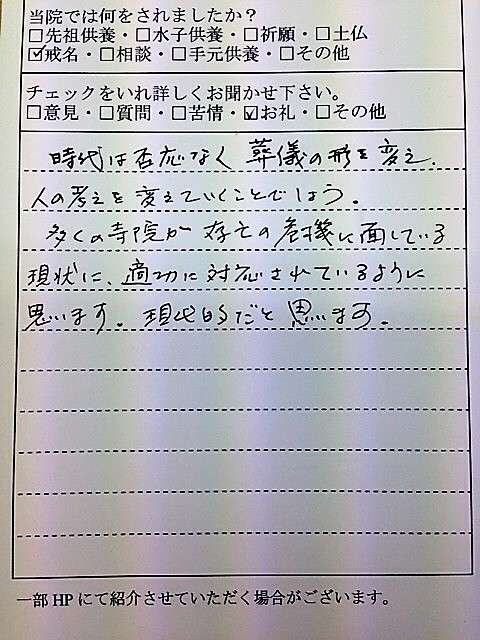 当院では何をされましたか？
□先祖供養・□水子供養・□祈願・□土仏
☑戒名・□相談・□手元供養・□その他
チェックをいれ詳しくお聞かせ下さい。
□意見・□質問・□苦情・☑お礼・□その他
時代は否応なく葬儀の形を変え、
人の考えを変えていくことでしょう。
多くの寺院が存その危機に面している
現状に、適切に対応されているように
思います。現代的だと思います。
一部HPにて紹介させていただく場合がございます。